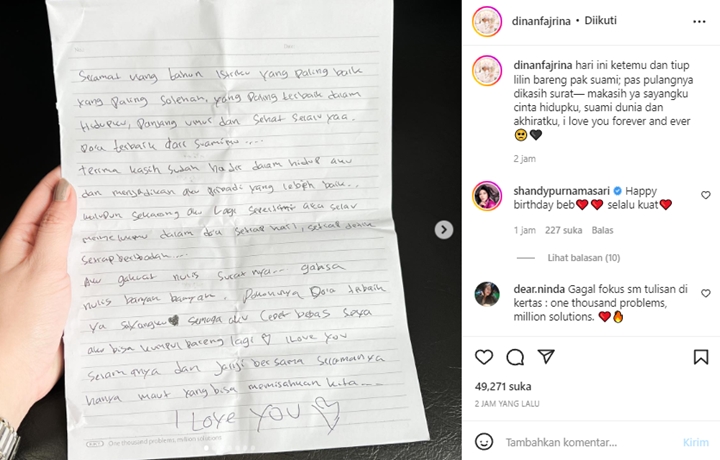 No.
Selamat ulang tahun istriku yang paling baik
yang paling solehah, yang paling terbaik dalam
Hidupku, panjang umur dan sehat selalu yaa.
Doa terbaik dari suamimu ....
terima kasih sudah hadir dalam hidup aku
dan menjadikan aku pribadi yang lebih baik..
walupun sekarang aku lagi
dalam doa setiap hari, setiap
setiap beribadah...
Aku gakuat nulis suratnya... gabisa
nulis banyak banyak. Pokoknya Doa terbaik
ya sayangku🖤 semoga aku cepet bebas
aku bisa kumpul bareng lagi ♡ I Love You
selamanya dan janji bersama selamanya
hanya maut yang bisa memisahkan kita....
I Love You ♡
One thousand problems, million solutions
dinanfajrina • Diikuti
dinanfajrina hari ini ketemu dan tiup
lilin bareng pak suami; pas pulangnya
dikasih surat— makasih ya sayangku
cinta hidupku, suami dunia dan
akhiratku, i love you forever and ever
🥺🖤
2 jam
shandypurnamasari Happy
birthday beb❤️❤️ selalu kuat❤️
1 jam 227 suka Balas
Lihat balasan (10)
dear.ninda Gagal fokus sm tulisan di
kertas : one thousand problems,
million solutions. ❤️🔥
49,271 suka
2 JAM YANG LALU
Tambahkan komentar...
Kirim